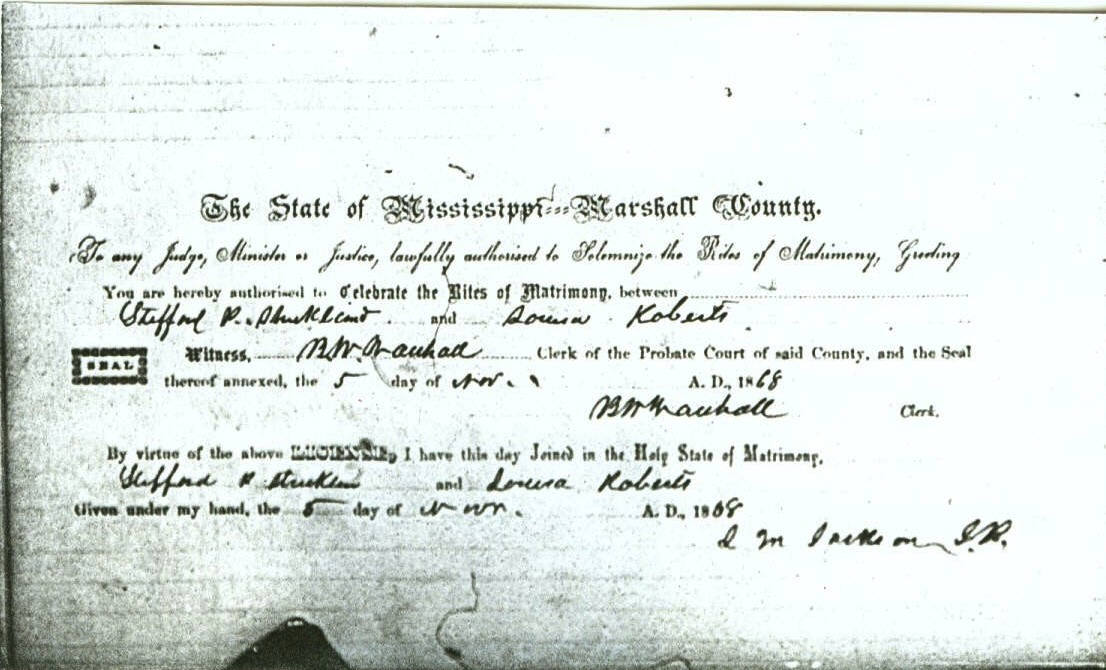 The State of Mississippi---Marshall County.
To any Judge, Minister or Justice, lawfully authorised to Solemnize the Rites of Matrimony, Greeting
You are hereby authorised to Celebrate the Rites of Matrimony, between
Stefford R. Strickland and Louisa Roberts
SEAL
Witness, B W Clerk of the Probate Court of said County, and the Seal
thereof annexed, the 5 day of Nov. A. D., 1868
B W Clerk.
By virtue of the above LICENSE, I have this day Joined in the Holy State of Matrimony,
Stefford R Stricklin and Louisa Roberts
Given under my hand, the 5 day of Nov. A. D., 1868
M Jackson